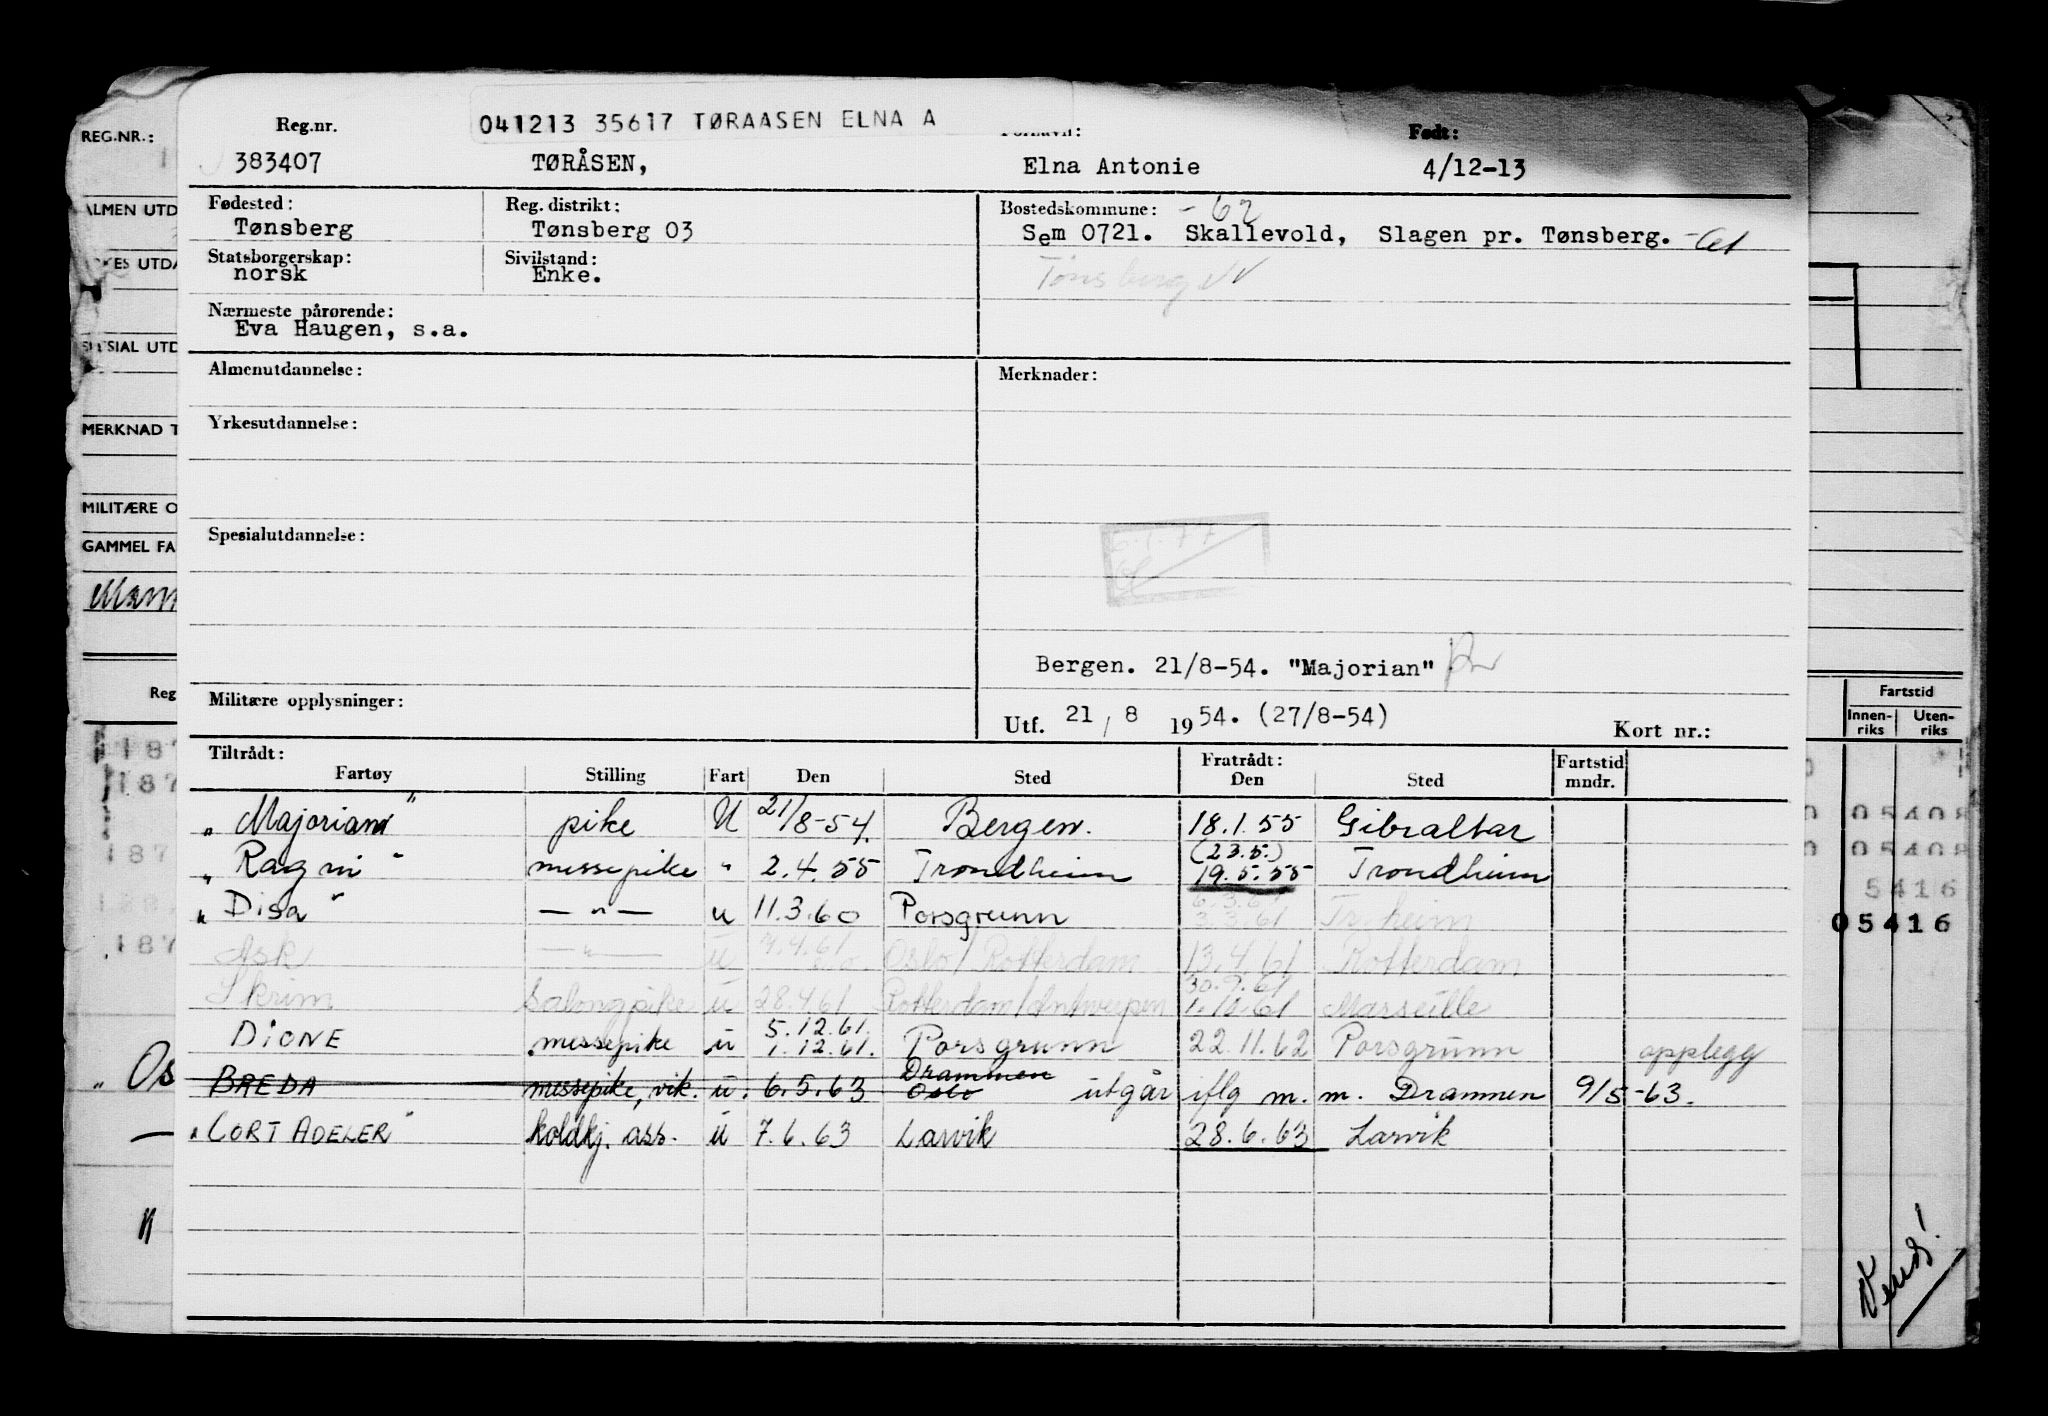 041213 35617 TØRAASEN ELNA A
REG.NR.:
Reg.nr. Født:
383407 TØRÅSEN, Elna Antonie 4/12-13
ALMEN UTD
Fødested: Reg. distrikt: Bostedskommune: -62
Tønsberg Tønsberg 03 Sem 0721. Skallevold, Slagen pr. Tønsberg. -61
Statsborgerskap: Sivilstand:
norsk Enke. Tønsberg
Nærmeste pårørende:
Eva Haugen, s.a.
Almenutdannelse: Merknader:
Yrkesutdannelse:
MERKNAD T
MILITÆRE O
Spesialutdannelse:
GAMMEL FA
Bergen. 21/8-54. "Majorian"
Militære opplysninger:
Utf. 21/8 1954. (27/8-54) Kort nr.:
Reg
Fartstid
Innen-riks Uten-riks
Tiltrådt: Fratrådt: Fartstid
Fartøy Stilling Fart Den Sted Den Sted mndr.
"Majorian" pike U 21/8-54. Bergen. 18.1.55 Gibraltar
(23.5.)
"Ragni" messepike " 2.4.55 Trondheim 19.5.55 Trondheim
6.3.61
"Disa" — " — u 11.3.60 Porsgrunn 3.3.61 Tr.heim
Ask — " — u 4.4.61 Oslo/Rotterdam 13.4.61 Rotterdam
30.9.61
Skrim Salongpike u 28.4.61 Rotterdam/Antwerpen 1.10.61 Marseille
5.12.61.
DIONE messepike u 1.12.61. Porsgrunn 22.11.62 Porsgrunn opplegg
Drammen
BREDA messepike, vik. u. 6.5.63 Oslo utgår iflg m. m. Drammen 9/5-63.
"CORT ADELER" koldkj. ass. u 7.6.63 Larvik 28.6.63 Larvik
05408
05408
5416
05416
187
187
187
187
Os
"
Vend!